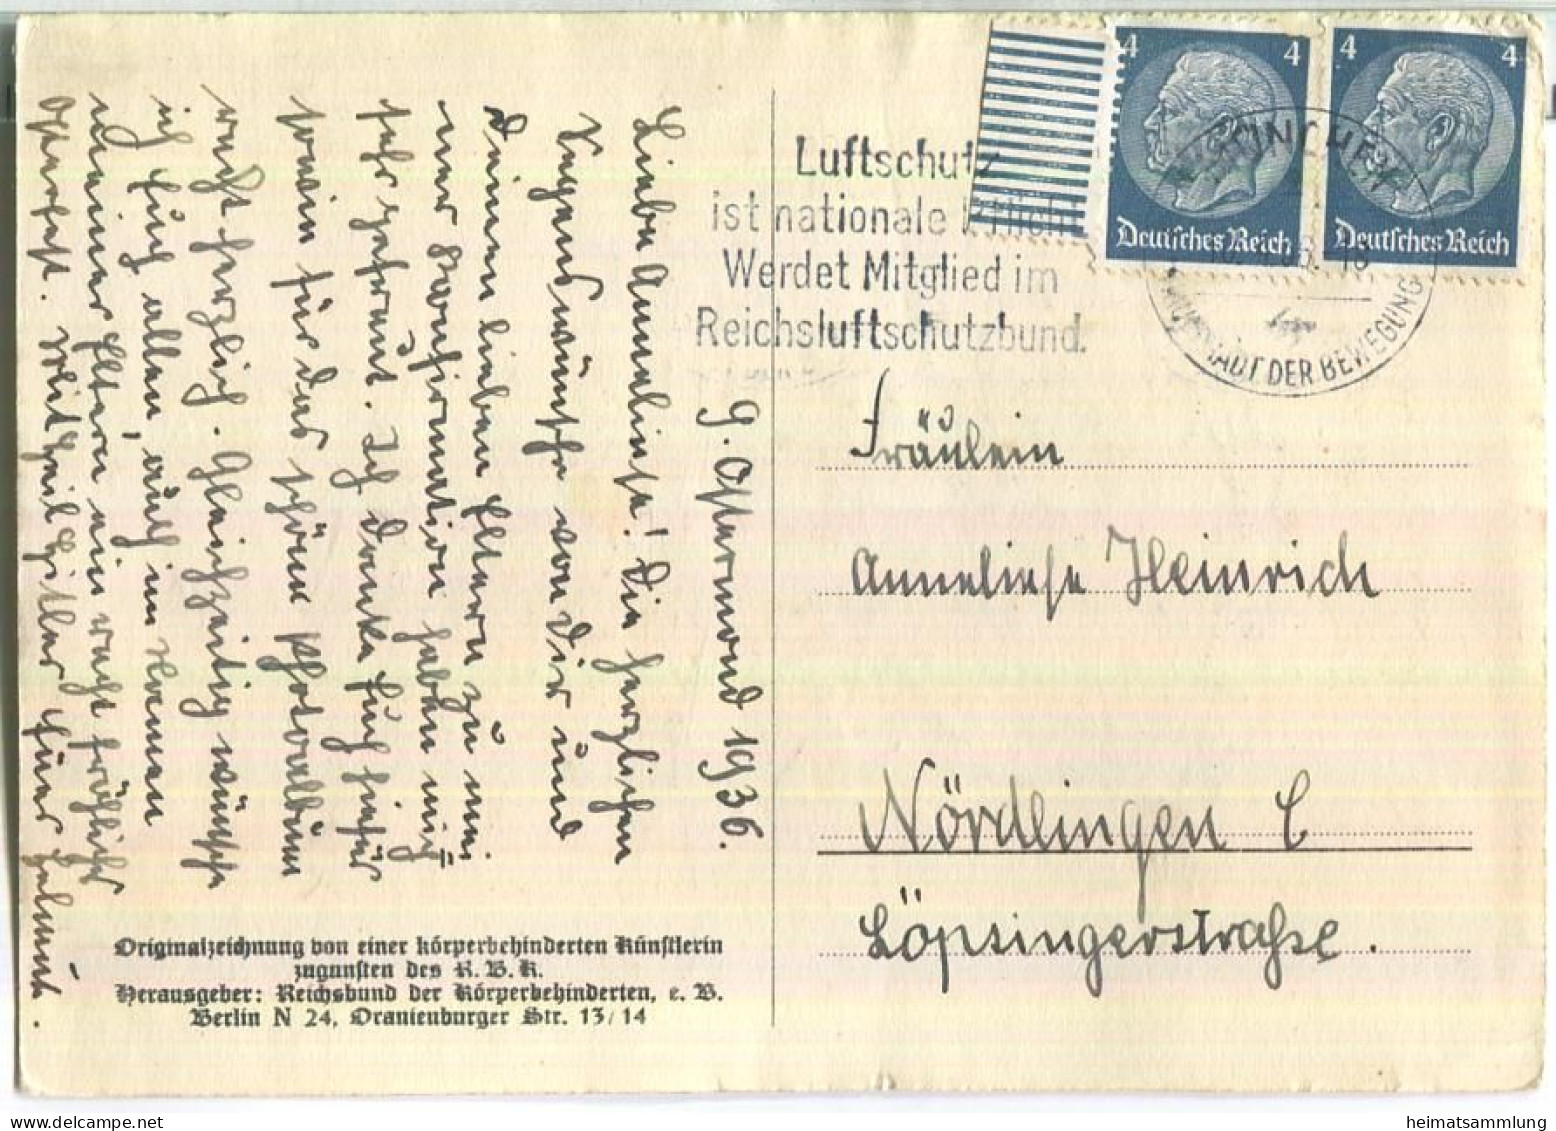 9. Ostermond 1936.
Liebe Anneliese! Die herzlichen
Segenswünsche von Dir und
Deinen lieben Eltern zu mei
ner Konfirmation haben mich
sehr gefreut. Ich danke Euch hiefür
sowie für das schöne Photoalbum
recht herzlich. Gleichzeitig wünsche
ich Euch allen, auch im Namen
meiner Eltern ein recht fröhliches
Osterfest. Mit Heil Hitler Euer Helmut.
Originalzeichnung von einer körperbehinderten Künstlerin
zugunsten des R. B. K.
Herausgeber: Reichsbund der Körperbehinderten, e. V.
Berlin N 24, Oranienburger Str. 13/14
Luftschutz
ist nationale Pflicht
Werdet Mitglied im
Reichsluftschutzbund.
4 4
Deutsches Reich
4 4
Deutsches Reich
MÜNCHEN
HAUPTSTADT DER BEWEGUNG
Fräulein
Anneliese Heinrich
Nördlingen C
Löpsingerstraße.
heimatsammlung
www.delcampe.net